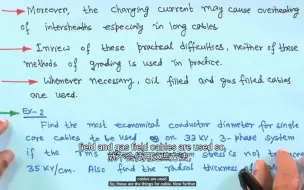 Moreover, the charging current may cause overheating
of intersheaths especially in long cables.
In view of these practical difficulties, neither of these
methods of grading is used in practice.
Whenever necessary, oil filled and gas filled cables
are used.
Ex-2
Find the most economical conductor diameter for single
core cables to be used on 33 kV, 3-phase system
if the rms stress is not to
35 kV/cm. Also find the radial thickness
field and gas field cables are used so,
cables are used.
So, these are the things for cable. Now further